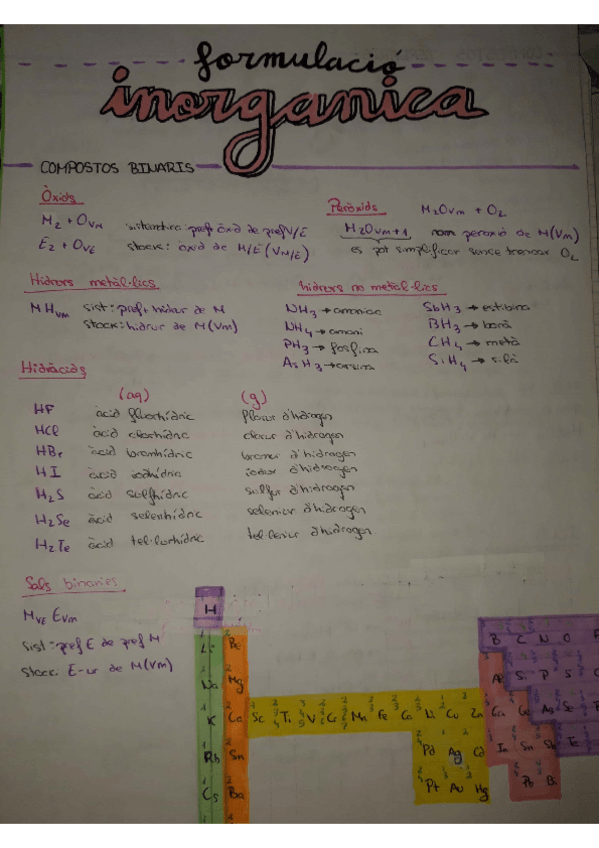 formulació
inorganica
COMPOSTOS BINARIS
Òxids
M2 + OVM sistemàtica: pref òxid de pref M/E
E2 + OVE stock: òxid de M/E (VM/E)
Peròxids M2OVM + O2
M2OVM+1 nom peroxid de M(VM)
es pot simplificar sense trencar O2
Hidrurs metàl·lics
MHVM sist: pref. hidrur de M
stock: hidrur de M(VM)
hidrurs no metàl·lics
NH3 → amoniac
NH4 → amoni
PH3 → fosfina
AsH3 → arsina
SbH3 → estibina
BH3 → borà
CH4 → metà
SiH4 → silà
Hidràcids
(aq) (g)
HF àcid fluorhídric fluorur d'hidrogen
HCl àcid clorhídric clorur d'hidrogen
HBr àcid bromhídric bromur d'hidrogen
HI àcid iodhídric iodur d'hidrogen
H2S àcid sulfhídric sulfur d'hidrogen
H2Se àcid selenhídric seleniur d'hidrogen
H2Te àcid tel·lurhídric tel·leriur d'hidrogen
Sals binaries
MVE EVM
sist: pref E de pref M
stock: E-ur de M(VM)
H
Li Be B C N O F
Na Mg Al Si P S C
K Ca Sc Ti V Cr Mn Fe Co Ni Cu Zn Ga Ge As Se
Rb Sn Pd Ag Cd In Sn Sb Te
Cs Ba Pt Au Hg Pb Bi